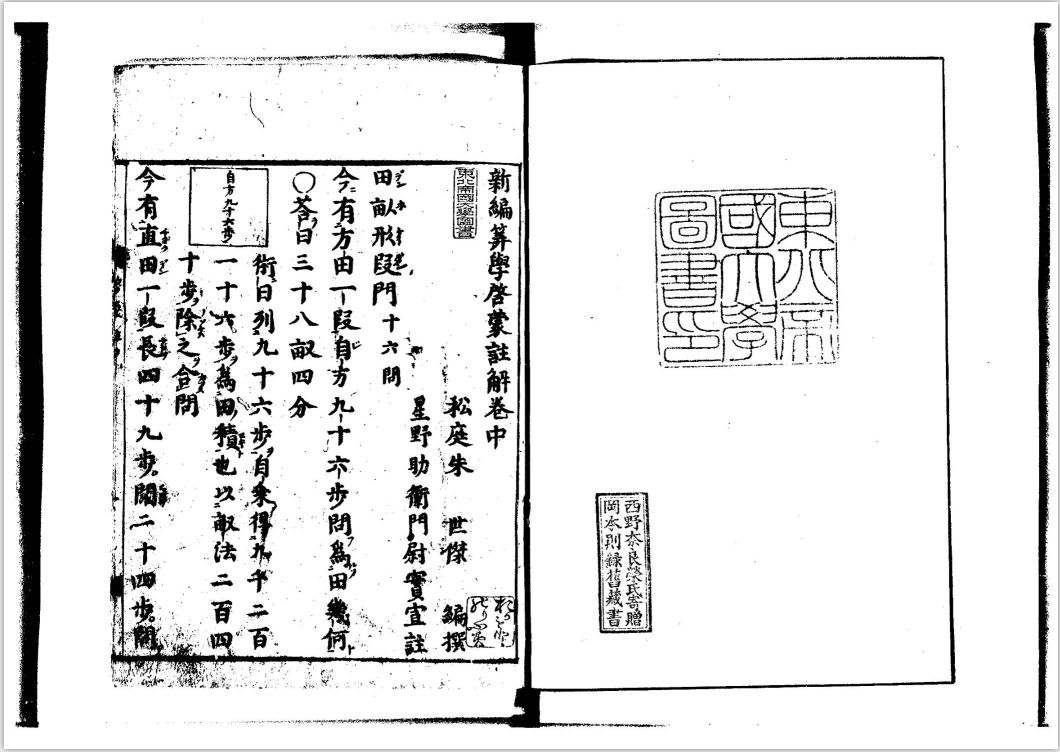 東北帝
國大學
圖書印
西野奈良榮氏寄贈
岡本則錄舊藏書
新編筭學啓蒙註解卷中
東北帝國大學圖書
松庭朱 世傑 編撰
星野助衛門尉實宣註
田畝形段門 十六問
今有方田一段自方九十六步問為田幾何
〇荅曰三十八畝四分
術曰列九十六步自乘得九千二百
一十六步為田積也以畝法二百四
十步除之合問
自方九十六步
今有直田一段長四十九步闊二十四步問